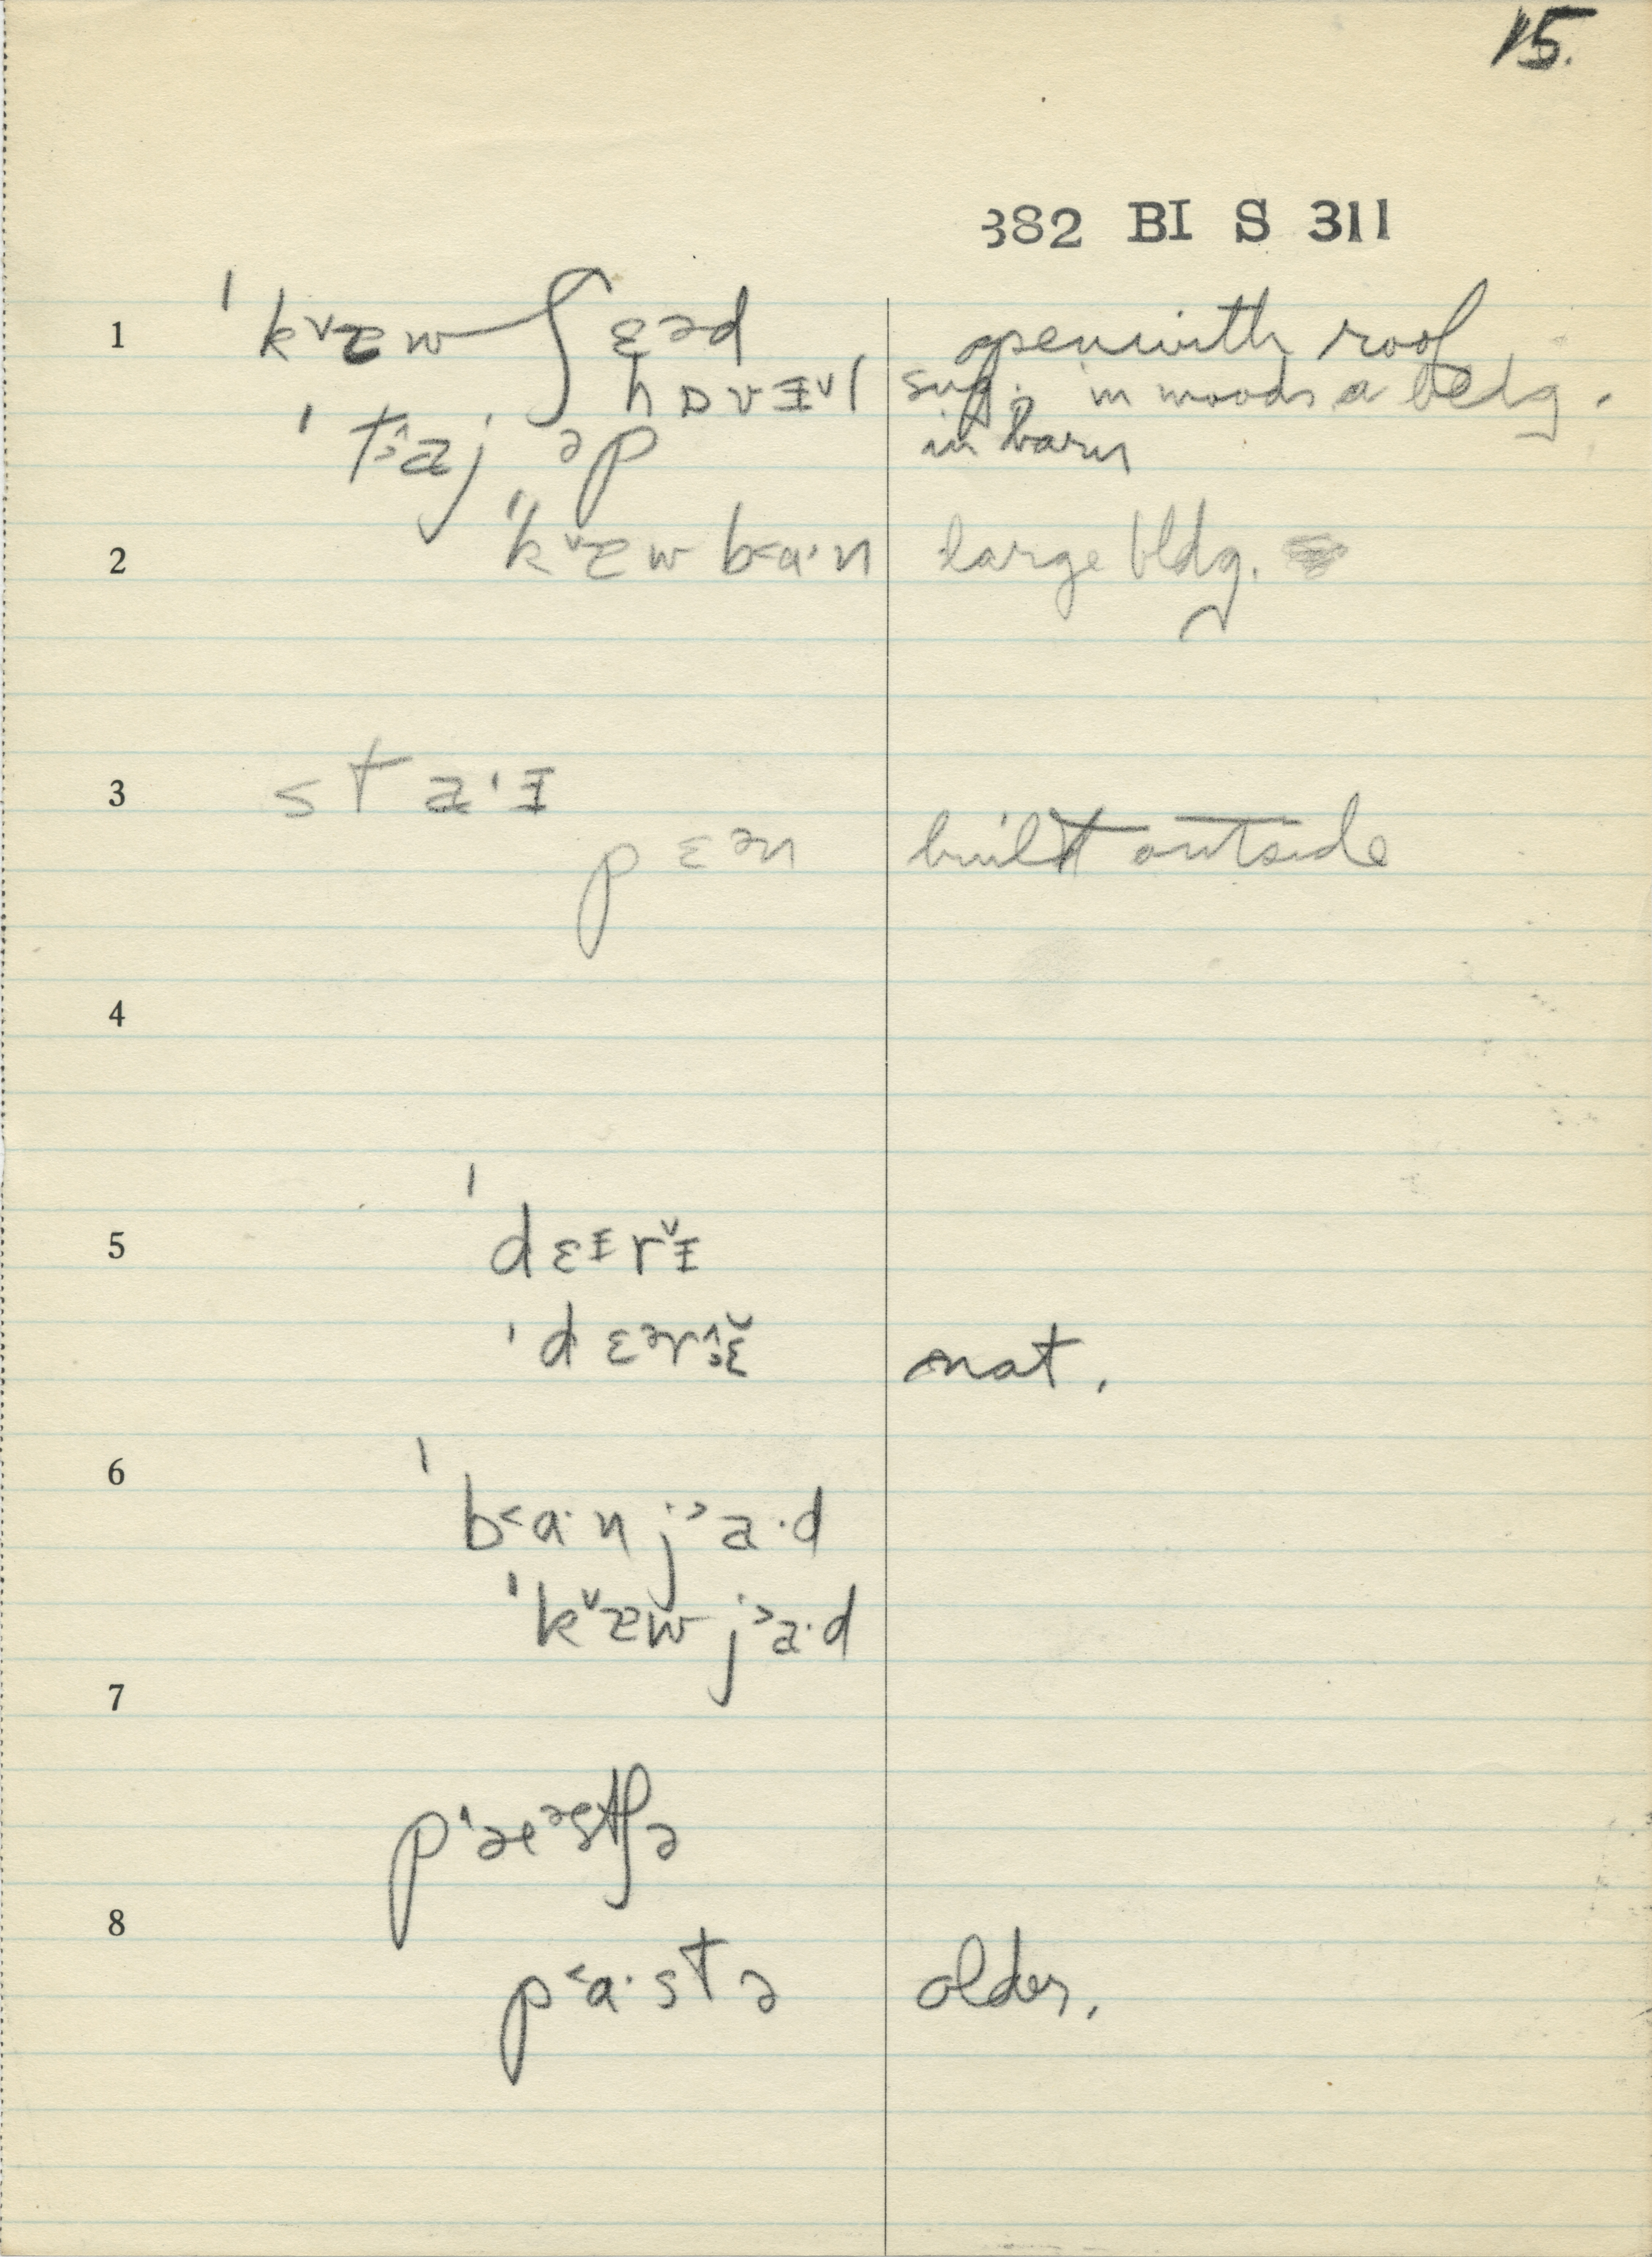 15.
382 BI S 311
1 ˈkᵛæw ʃɛəd openwith roof
hɒvɪᵛl sug. in woods a bldg.
ˈtɜ^aj əp in barn
2 ˈkᵛæw b˂a·n large bldg.
3 sta·ɪ
pɛən built outside
4
5 ˈdɛɪrᵛɪ
ˈdɛərɪ̆ nat.
6 ˈb˂a·n j˃a·d
ˈkᵛæw j˃a·d
7
pˈæᵊstʃə
8
p˂a·stə older.